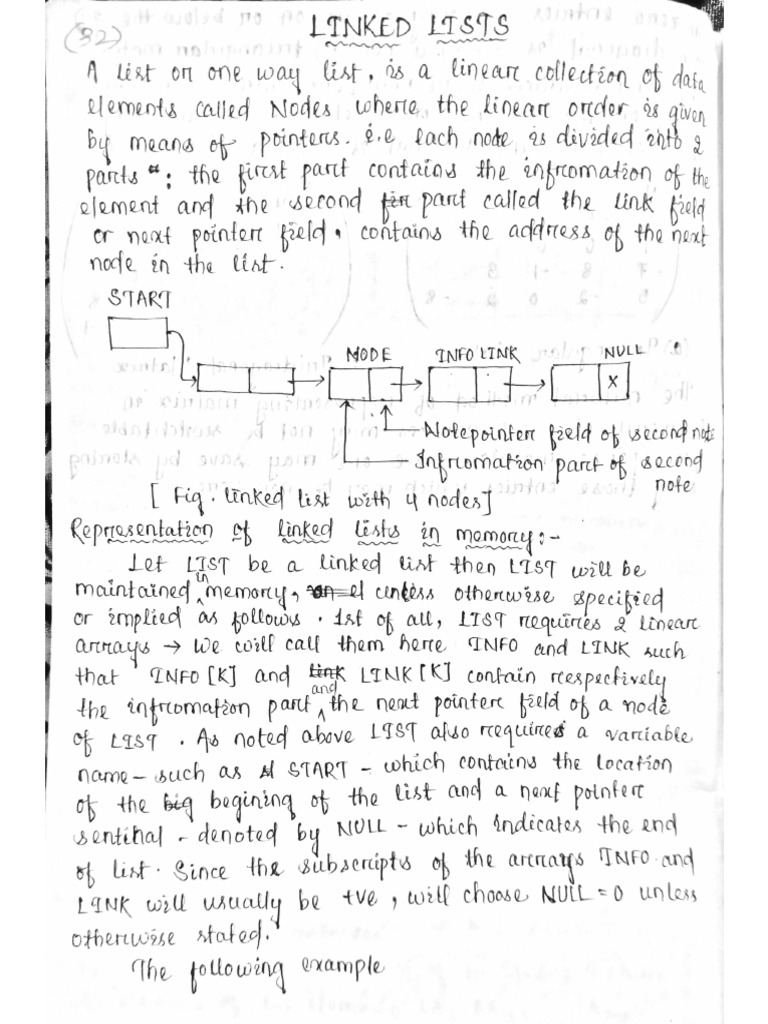 (32)
LINKED LISTS
A list or one way list, is a linear collection of data
elements called Nodes where the linear order is given
by means of pointers. i.e each node is divided into 2
parts : the first part contains the information of the
element and the second part called the link field
or next pointer field, contains the address of the next
node in the list.
START
NODE INFO LINK NULL
X
Notepointer field of second note
Information part of second
note
[ Fig. linked list with 4 nodes]
Representation of linked lists in memory:-
Let LIST be a linked list then LIST will be
maintained in memory, unless otherwise specified
or implied as follows. 1st of all, LIST requires 2 linear
arrays → We will call them here INFO and LINK such
that INFO [K] and LINK [K] contain respectively
the information part and the next pointer field of a node
of LIST. As noted above LIST also requires a variable
name - such as START - which contains the location
of the begining of the list and a next pointer
sentinal - denoted by NULL - which indicates the end
of list. Since the subscripts of the arrays INFO and
LINK will usually be +ve, will choose NULL = 0 unless
otherwise stated.
The following example